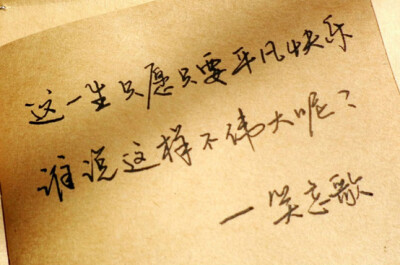 这一生只愿只要平凡快乐
谁说这样不伟大呢?
一笑忘歌